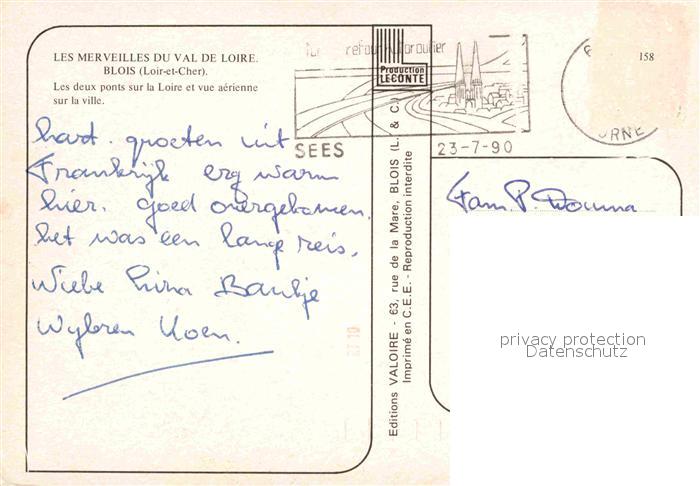 LES MERVEILLES DU VAL DE LOIRE.
BLOIS (Loir-et-Cher).
Les deux ponts sur la Loire et vue aérienne
sur la ville.
Production
LECONTE
158
SEES
23-7-90
ORNE
hart. groeten uit
Frankrijk erg warm
hier. goed overgekomen.
het was een lange reis.
Wiebe Baukje
Wybren Koen.
Fam. P. Douma
Editions VALOIRE - 63, rue de la Mare, BLOIS (L. & C.)
Imprimé en C.E.E. - Reproduction interdite
privacy protection
Datenschutz